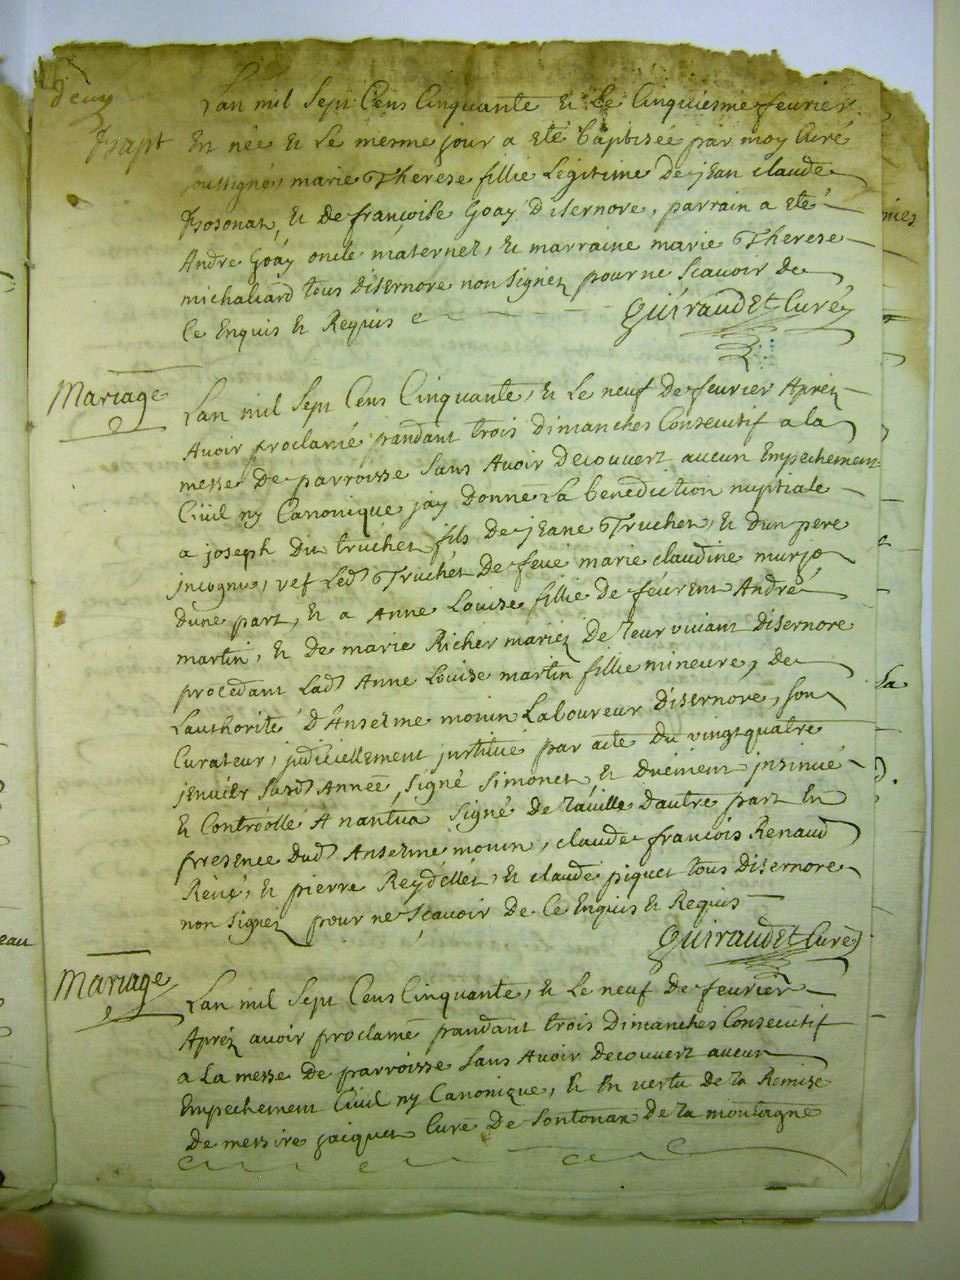 deux
Bapt
Lan mil Sept Cens Cinquante et le Cinquiesme fevrier
En née et Le mesme jour a eté baptisée par moy Curé
soussigné, marie Therese fillie Legitime De jean claude
Bosonat, et de françoise Goay D'isernore, parrain a eté
Andre Goay oncle maternel, et marraine marie Therese
michaliard tous Disernore non signez pour ne Scavoir de
Ce Enquis et Requis
Guiraudet Curé
Mariage
Lan mil Sept Cens Cinquante, et Le neuf De fevrier Aprez
Avoir proclamé pandant trois Dimanches Consecutif a la
messe De parroisse Sans Avoir Decouvert aucun Empechement
Civil ny Canonique jay Donné La benediction nuptiale
a joseph Dit truchet fils De jeane Truchet, et dun pere
incognu, vef Led. Truchet De feüe marie claudine murjo
Dune part, et a Anne Louise fillie De feü André
martin, et De marie Richer mariez De Leur vivant Disernore
procedant Lad. Anne Louise martin fillie mineure, De
Lauthorité D'Anselme monin Laboureur Disernore, son
Curateur, judiciellement justitué par acte Du vingtquatre
jenvier Susd. Année, signé Simonet, et Dueiment insinué
et Controolle A nantua signé De Laville Dautre part En
presence Dud. Anselme monin, claude françois Renaud
René, et pierre Reydellet, et claude piquet tous Disernore
non signez pour ne Sçavoir De Ce Enquis et Requis
Guiraudet Curé
Mariage
Lan mil Sept Cens Cinquante, et Le neuf De fevrier
Aprez avoir proclamé pandant trois Dimanches Consecutif
a La messe De parroisse Sans Avoir Decouvert aucun
Empechement Civil ny Canonique, et En vertu De La Remise
De messire jaiquet Curé De Sontonax De La montagne